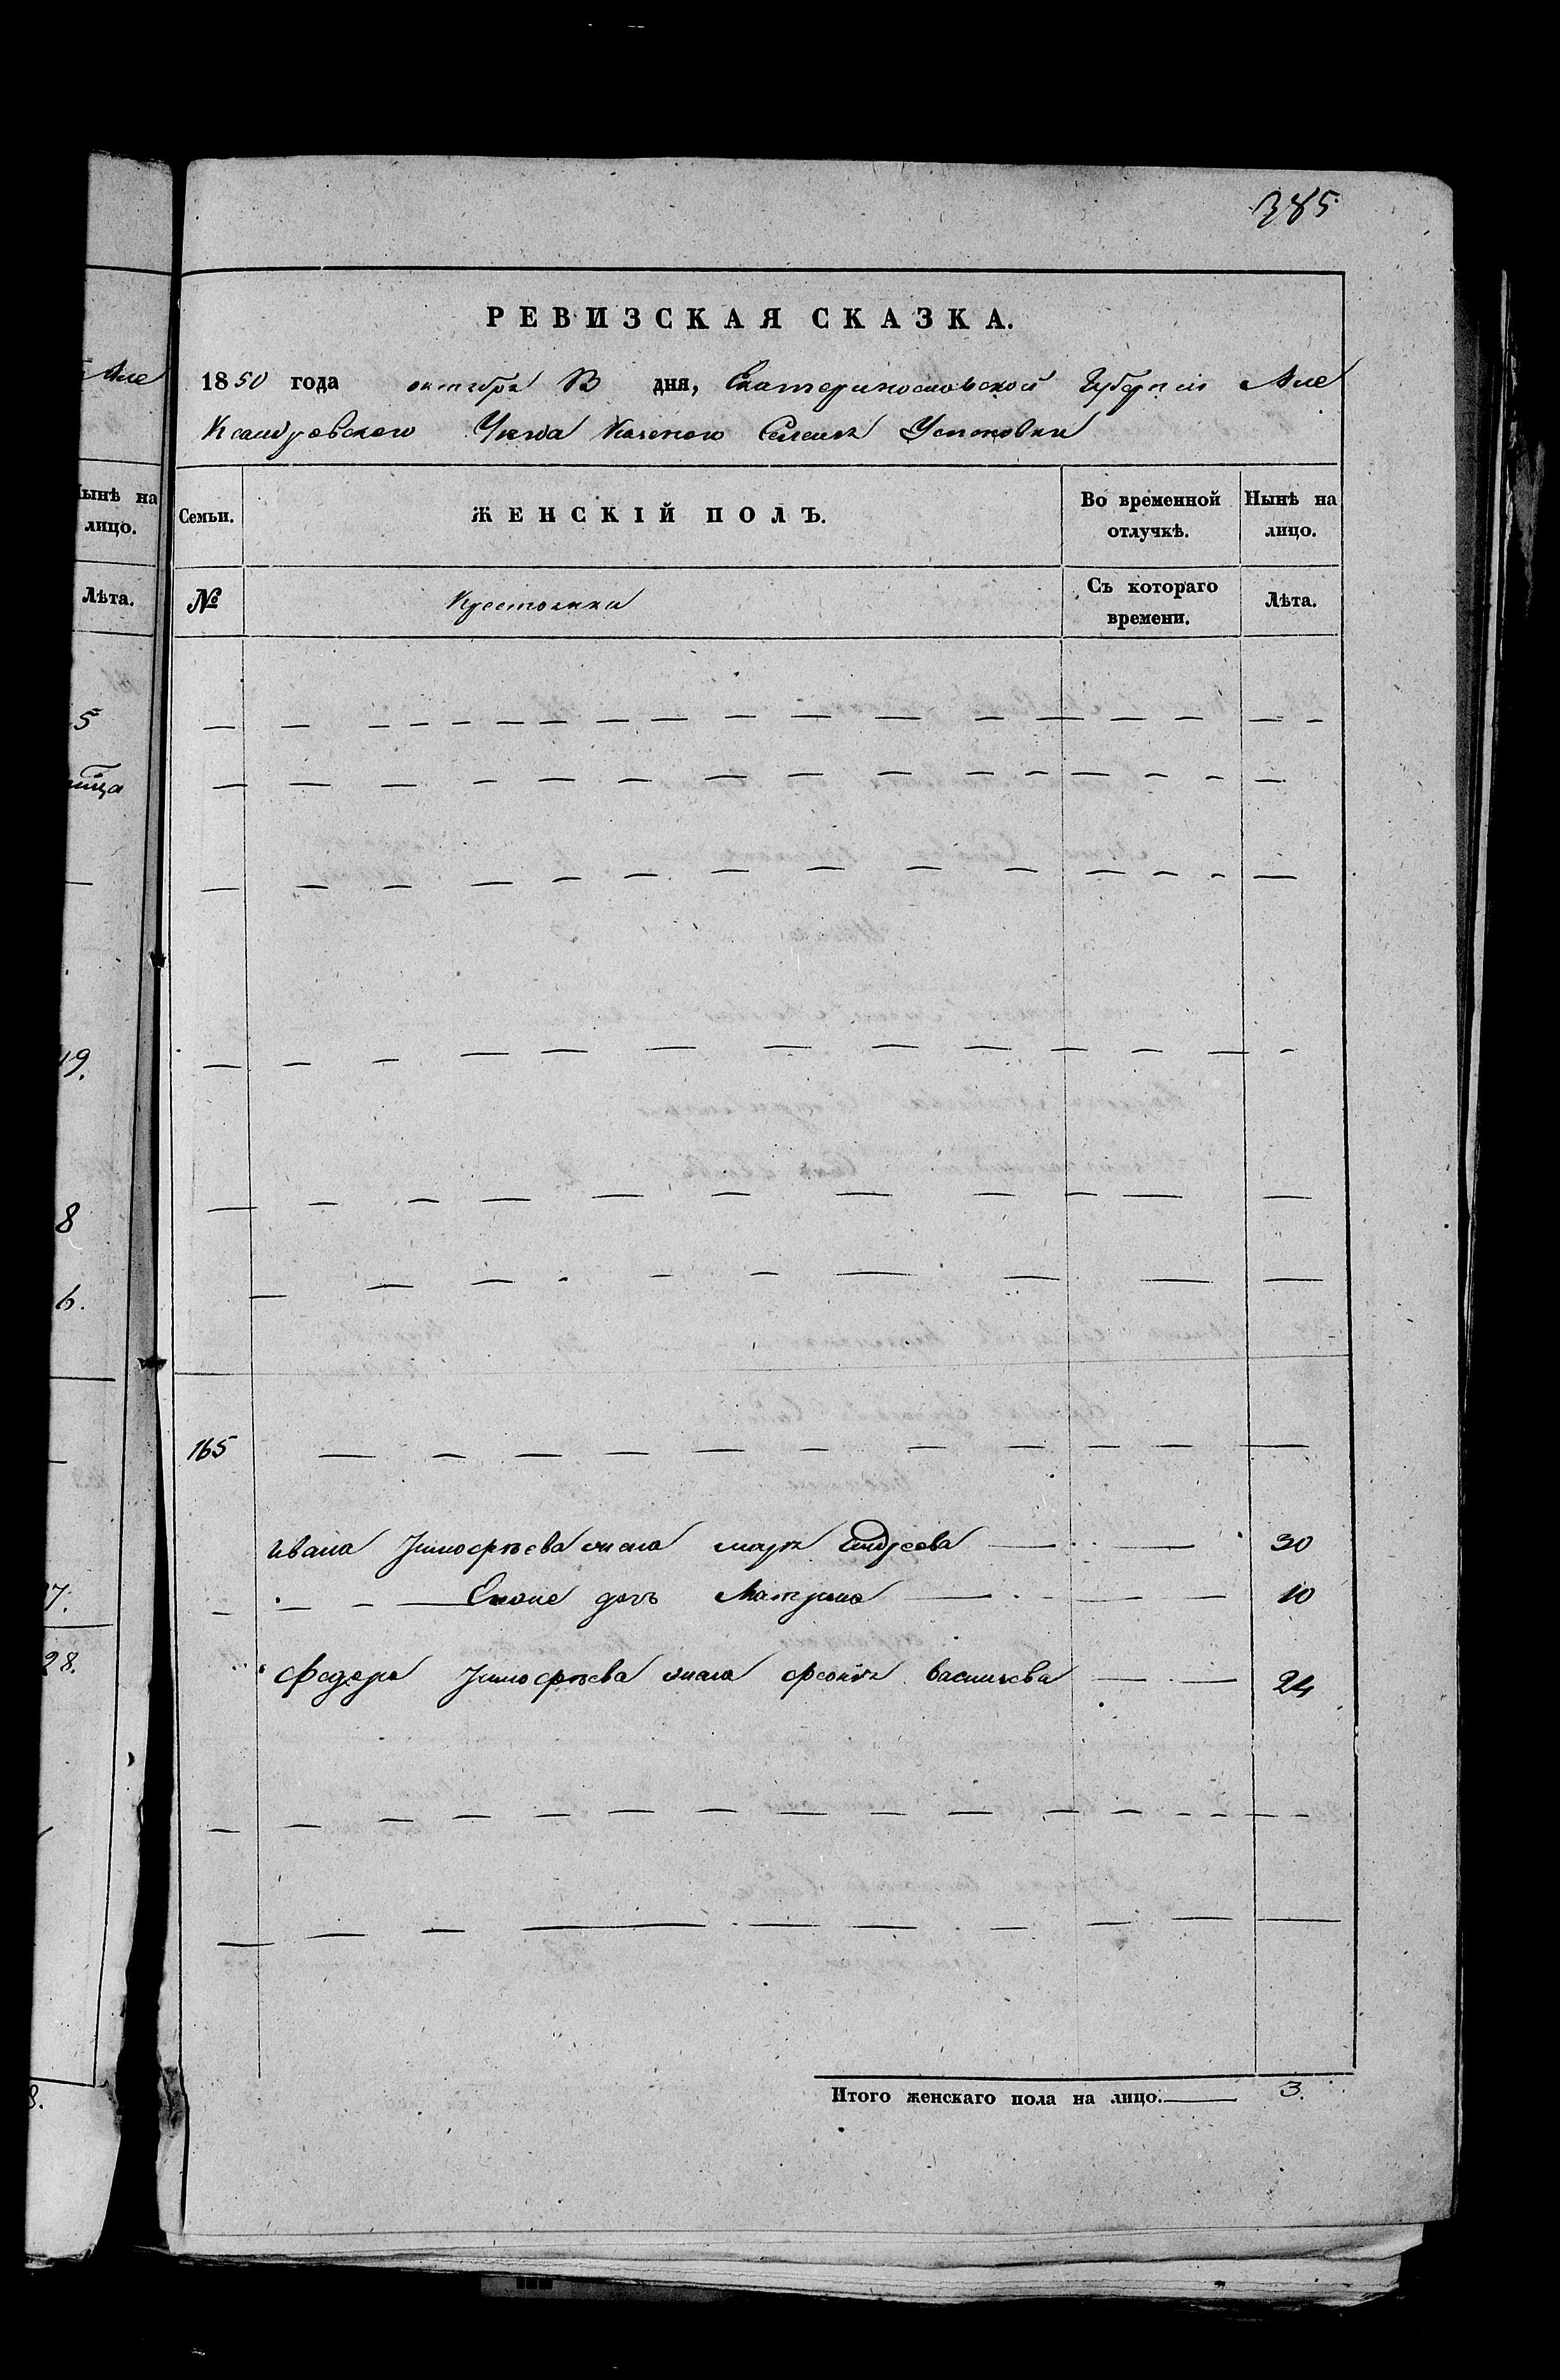 385
РЕВИЗСКАЯ СКАЗКА.
1850 года октября 13 дня, Екатеринославской Губерніи Але
Ксандровского Уезда Казеного Селенія Успеновки
Семьи. ЖЕНСКІЙ ПОЛЪ. Во временной отлучкѣ. Нынѣ на лицо.
№ Крестьянки Съ котораго времени. Лѣта.
165
Ивана Тимофѣева жена Марья Андреева 30
Еноже дочь Матрена 10
Федора Тимофѣева жена Феокла Васильева 24
Итого женскаго пола на лицо. 3.
Але
Нынѣ на
лицо.
Лѣта.
5
19.
8
6.
7.
28.
8.